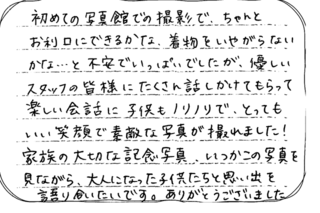 初めての写真館での撮影で、ちゃんと
お利口にできるかな、着物をいやがらない
かな…と不安でいっぱいでしたが、優しい
スタッフの皆様にたくさん話しかけてもらって
楽しい会話に子供もノリノリで、とっても
いい笑顔で素敵な写真が撮れました!
家族の大切な記念写真、いつかこの写真を
見ながら、大人になった子供たちと思い出を
語り合いたいです。ありがとうございました